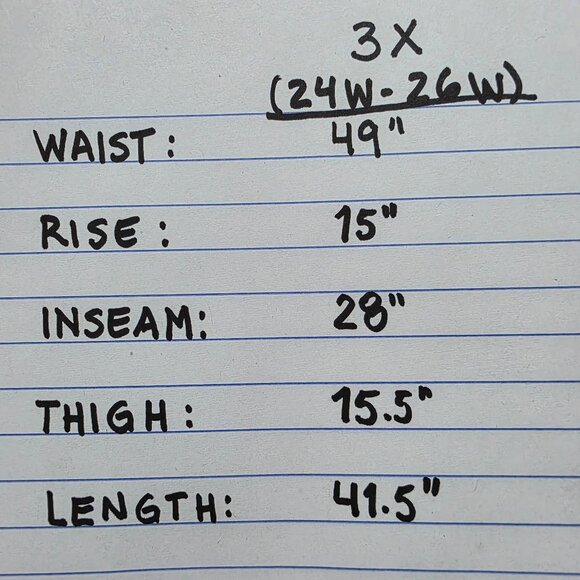 3X
(24W-26W)
WAIST: 49"
RISE: 15"
INSEAM: 28"
THIGH: 15.5"
LENGTH: 41.5"